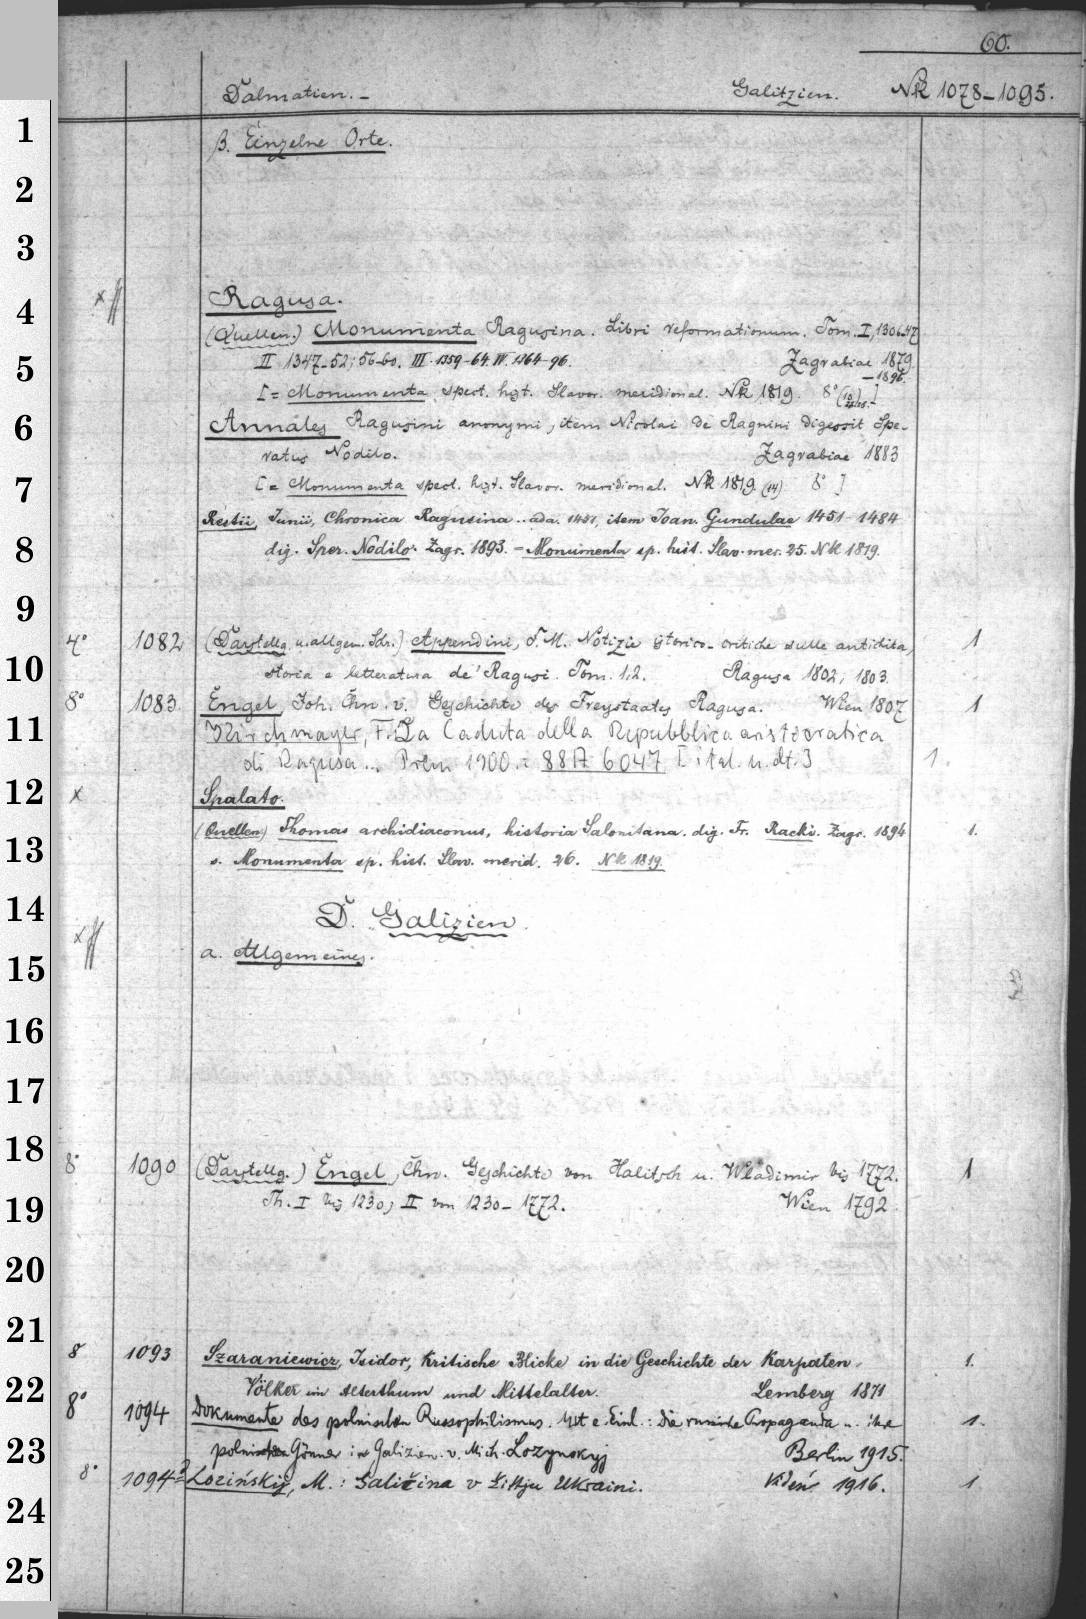 60.
Dalmatien. – Galitzien. Nk 1078–1095.
1
β. Einzelne Orte.
2
3
Ragusa.
4
(Quellen.) Monumenta Ragusina. Libri reformationum. Tom. I, 1306–47
5 II 1347–52; 56–60. III. 1359–64. IV. 1364–96. Zagrabiae 1879
– 1896.
[= Monumenta spect. hist. Slavor. meridional. Nk 1819. 8° ]
6 Annales Ragusini anonymi, item Nicolai de Ragnini digessit Spe-
ratus Nodilo. Zagrabiae 1883
7 [= Monumenta spect. hist. Slavor. meridional. Nk 1819. (14) 8° ]
Restii, Junii, Chronica Ragusina .. ada. 1451, item Joan. Gundulae 1451–1484
8 dig. Sper. Nodilo. Zagr. 1893. = Monumenta sp. hist. Slav. mer. 25. Nk 1819.
9
4° 1082 (Darstellg. u. allgem. Schr.) Appendini, F. M. Notizie istorico-critiche sulle antichita, 1
10 storia e letteratura de' Ragusi. Tom. 1,2. Ragusa 1802, 1803.
8° 1083 Engel, Joh. Chn. v. Geschichte des Freystaates Ragusa. Wien 1807 1
11 Kirchmayer, F.: La Caduta della Repubblica aristocratica
di Ragusa... 1900. = 88A 6047 [ital. u. dt.] 1.
12 x Spalato.
(Quellen) Thomas archidiaconus, historia Salonitana. dig. Fr. Racki. Zagr. 1894 1.
13 s. Monumenta sp. hist. Slav. merid. 26. Nk 1819.
14 D. Galizien.
15 a. Allgemeines.
16
17
18
8° 1090 (Darstellg.) Engel, Chn. Geschichte von Halitsch u. Wladimir bis 1772. 1
19 Th. I bis 1230, II von 1230–1772. Wien 1792.
20
21
8 1093 Szaraniewicz, Isidor, Kritische Blicke in die Geschichte der Karpaten- 1.
22 Völker im Alterthum und Mittelalter. Lemberg 1871
8° 1094 Dokumente des polnischen Russophilismus. Mit e. Einl.: Die russische Propaganda u. ihre 1.
23 polnischen Gönner in Galizien. v. Mich. Lozynskyj Berlin 1915.
8° 1094a Loziński, M.: Galičina v Ukraini. Videń 1916. 1
24
25